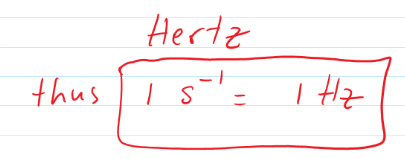 Hertz
thus 1 s⁻¹ = 1 Hz